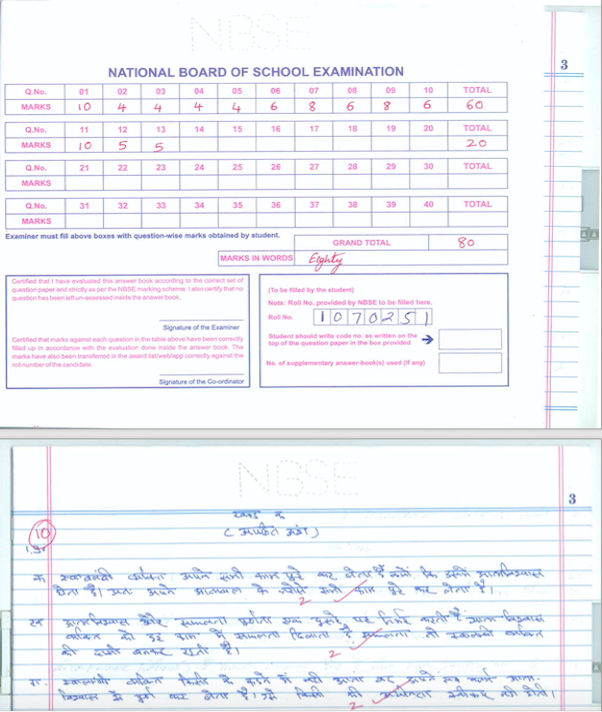 NBSE
3
NATIONAL BOARD OF SCHOOL EXAMINATION
Q.No. 01 02 03 04 05 06 07 08 09 10 TOTAL
MARKS 10 4 4 4 4 6 8 6 8 6 60
Q.No. 11 12 13 14 15 16 17 18 19 20 TOTAL
MARKS 10 5 5 20
Q.No. 21 22 23 24 25 26 27 28 29 30 TOTAL
MARKS
Q.No. 31 32 33 34 35 36 37 38 39 40 TOTAL
MARKS
Examiner must fill above boxes with question-wise marks obtained by student.
GRAND TOTAL 80
MARKS IN WORDS Eighty
Certified that I have evaluated this answer book according to the correct set of
question paper and strictly as per the NBSE marking scheme. I also certify that no
question has been left un-assessed inside the answer book.
Signature of the Examiner
Certified that marks against each question in the table above have been correctly
filled up in accordance with the evaluation done inside the answer book. The
marks have also been transferred in the award list/web/app correctly against the
roll number of the candidate.
Signature of the Co-ordinator
(To be filled by the student)
Note: Roll No. provided by NBSE to be filled here.
Roll No. 1070251
Student should write code no. as written on the
top of the question paper in the box provided
No. of supplementary answer-book(s) used (if any)
NBSE
3
खण्ड
10
क स्वावलंबी व्यक्ति अपने सभी काम पूरे कर लेता है क्यों कि उसमें आत्मविश्वास
होता है। अतः अपने आत्मबल के भरोसे सभी काम पूरे कर लेता है।
2
ख आत्मविश्वास और सफलता एक दूसरे पर निर्भर करती है
व्यक्ति को हर काम में सफलता दिलाता है सफलता तो स्वावलंबी व्यक्ति
की दासी बनकर रहती है।
2
ग. स्वावलंबी व्यक्ति किसी के में नही आता वह अपने सब कार्य आत्म
विश्वास से पूर्ण कर लेता है। उसे किसी की अधीनता स्वीकार नही होती।
2